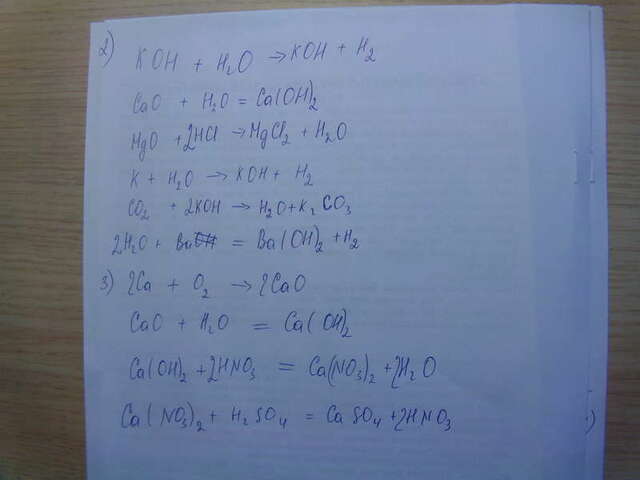 2) KOH + H₂O → KOH + H₂
CaO + H₂O = Ca(OH)₂
MgO + 2HCl → MgCl₂ + H₂O
K + H₂O → KOH + H₂
CO₂ + 2KOH → H₂O + K₂CO₃
2H₂O + Ba = Ba(OH)₂ + H₂
3) 2Ca + O₂ → 2CaO
CaO + H₂O = Ca(OH)₂
Ca(OH)₂ + 2HNO₃ = Ca(NO₃)₂ + 2H₂O
Ca(NO₃)₂ + H₂SO₄ = CaSO₄ + 2HNO₃